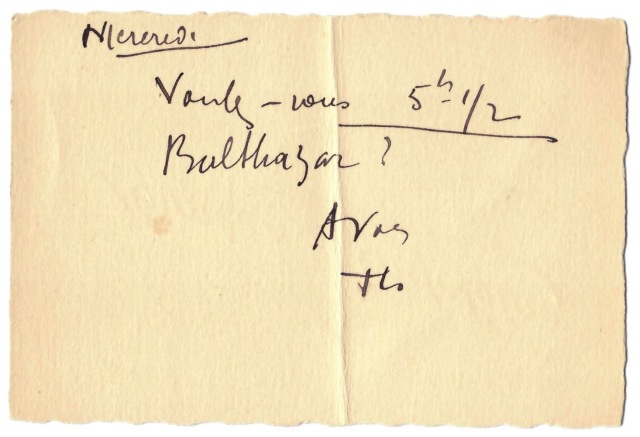 Mercredi
Voulez-vous 5h 1/2
Balthazar ?
A vous